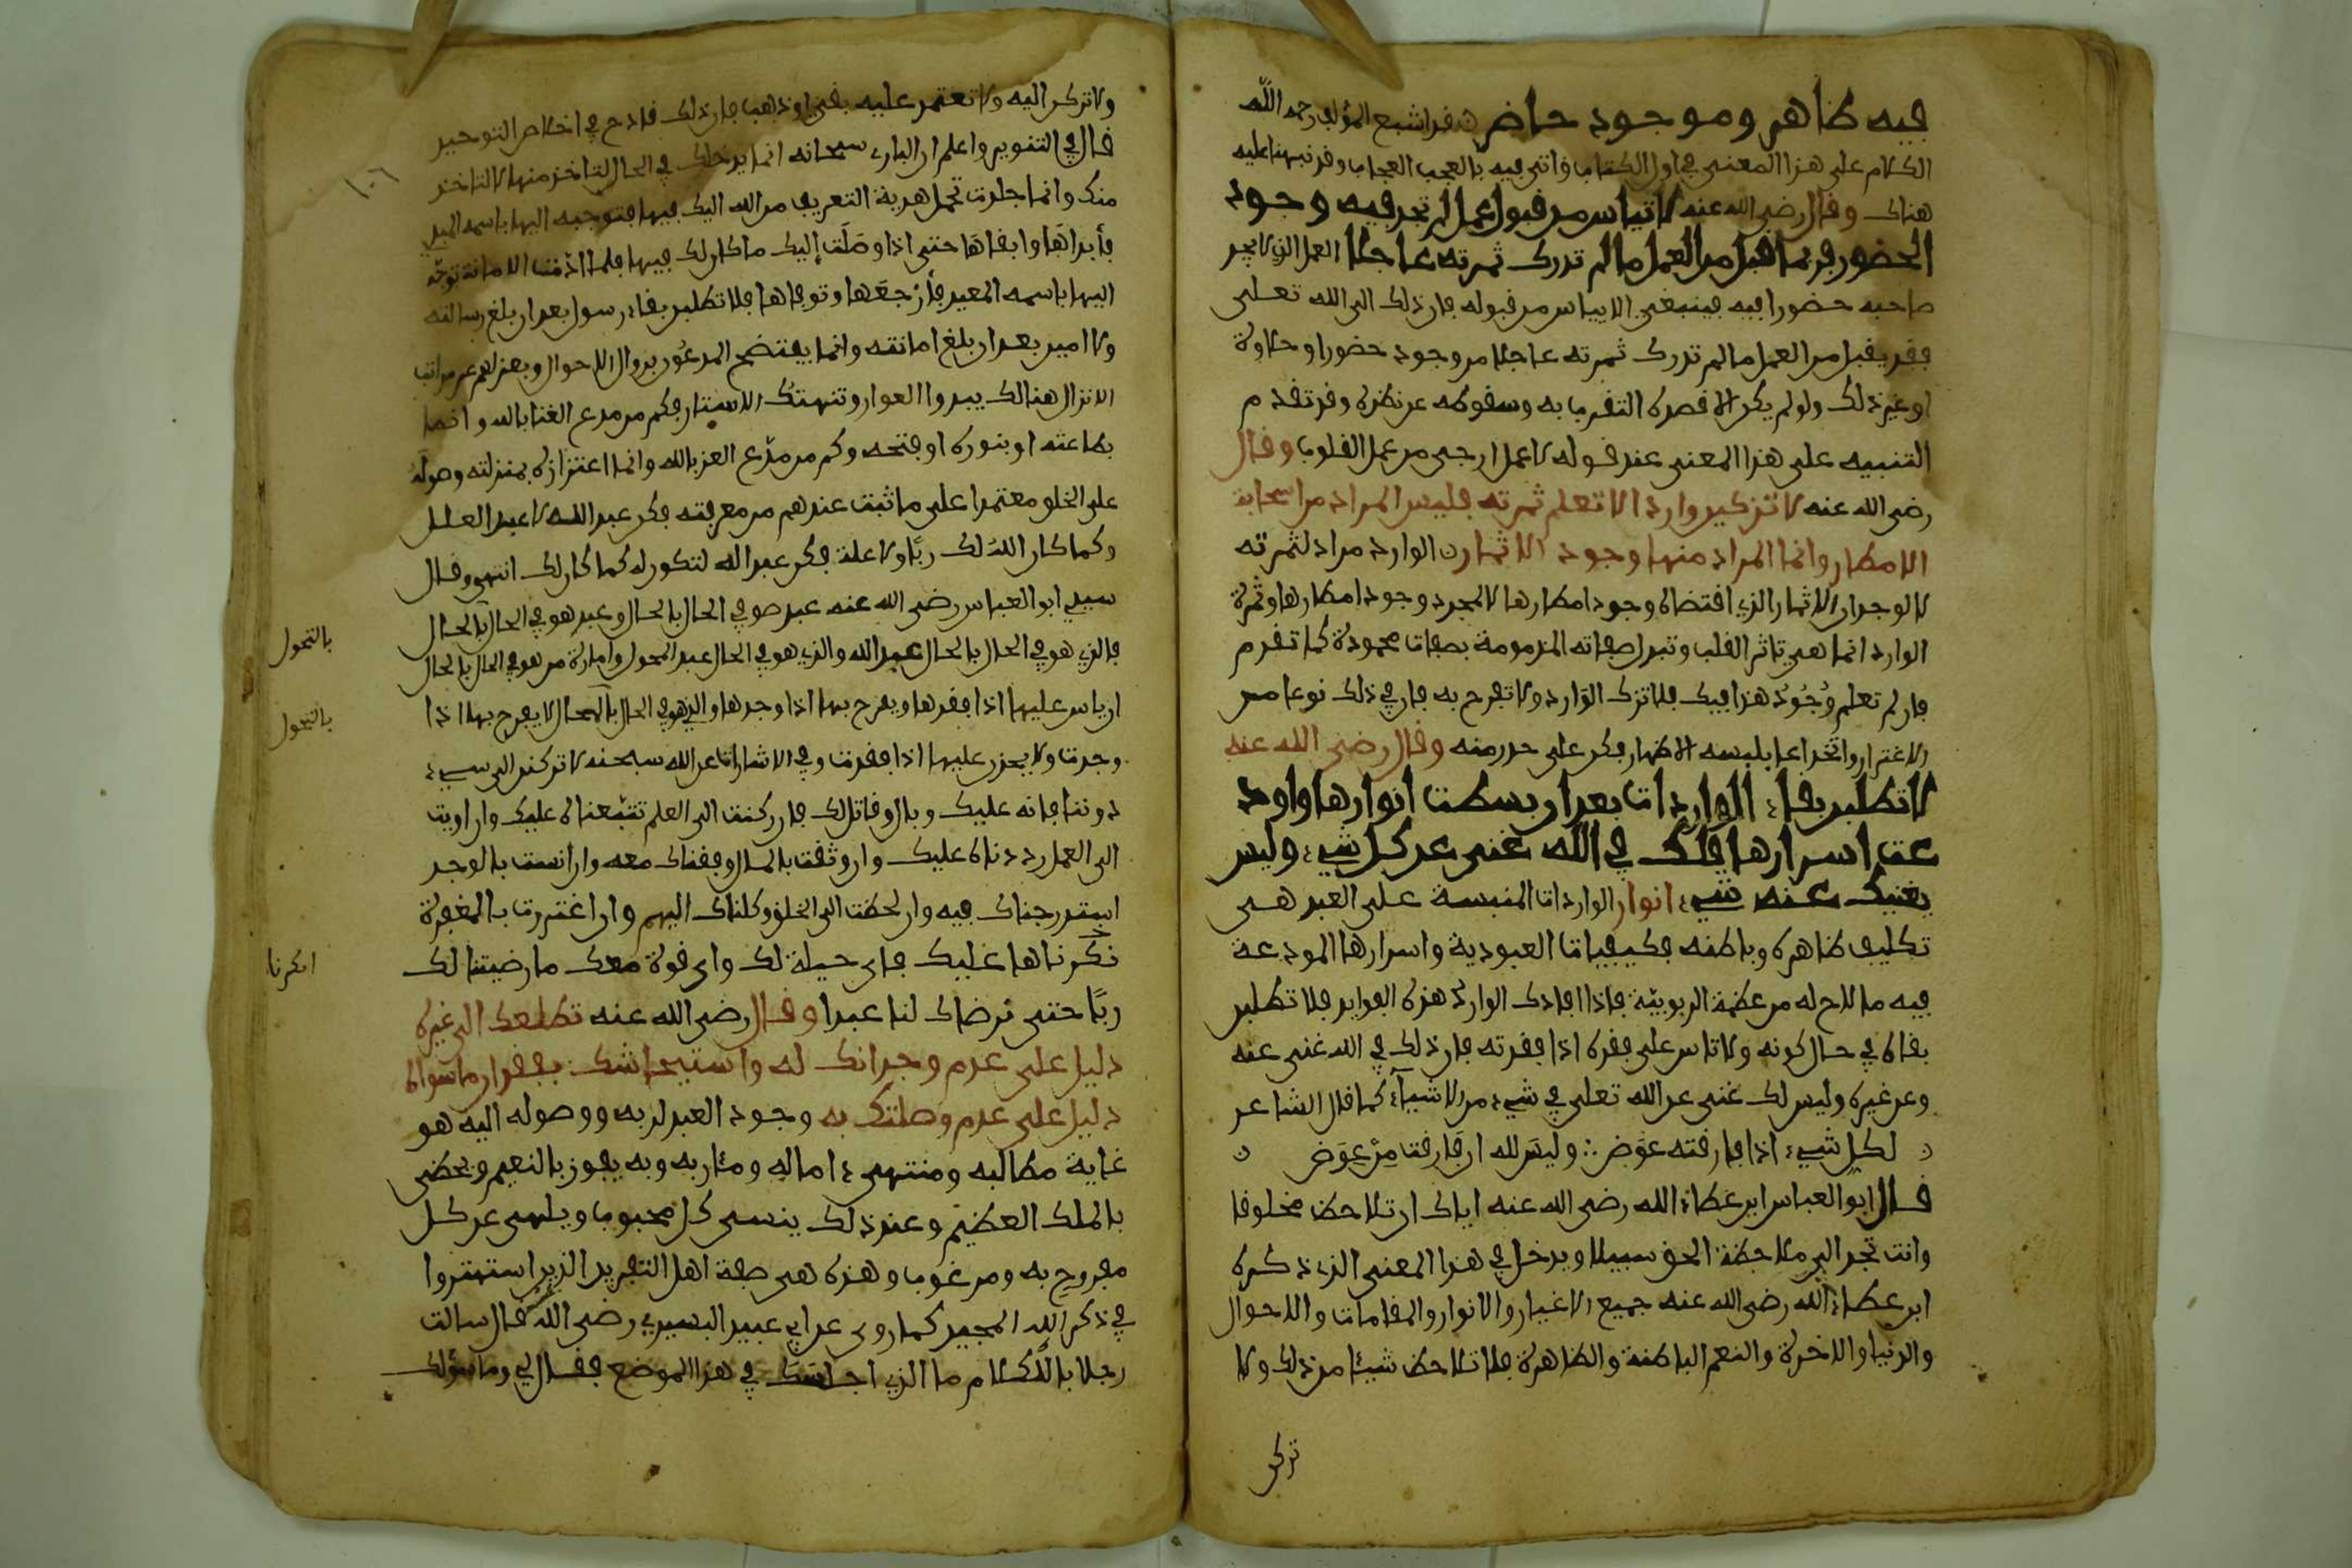 فيه ظاهر وموجود حاضر قد اشبع المؤلف رحمه الله
الكلام على هذا المعنى في اول الكتاب واتى فيه بالعجب العجاب وقد نبهنا عليه
هناك وقال رضي الله عنه لا تياس من قبول عمل لم تجد فيه وجود
الحضور فربما قبل من العمل ما لم تدرك ثمرته عاجلا العمل الذي لا يجد
صاحبه حضورا فيه فينبغي الا ييأس من قبوله فان ذلك الى الله تعلى
فقد يقبل من العمل ما لم تدرك ثمرته عاجلا من وجود حضور او حلاوة
او غير ذلك ولو لم يكن الا قصده التقرب به وسقوطه عن نظره وقد تقدم
التنبيه على هذا المعنى عند قوله لا عمل ارجى من عمل القلوب وقال
رضي الله عنه لا تزكين واردا لا تعلم ثمرته فليس المراد من السحابة
الامطار وانما المراد منها وجود الاثمار الوارد مراد لثمرته
لا لوجدان الاثمار الذي اقتضاه وجود امطارها لا لمجرد وجود امطارها وثمرة
الوارد انما هي تاثر القلب وتبدل صفاته المذمومة بصفات محمودة كما تقدم
فان لم تعلم وُجُودَ هذا فيك فلا تزك الوارد ولا تفرح به فان في ذلك نوعا من
الاغترار وانخداعا بلبسه الاظهار فكن على حذر منه وقال رضي الله عنه
لا تطلبن بقاء الواردات بعد ان بسطت انوارها واود
عت اسرارها فلك في الله غنى عن كل شيء وليس
يغنيك عنه شيء انوار الواردات المنبسة على العبد هي
تكليف ظاهره وباطنه بكيفيات العبودية واسرارها المودعة
فيه ما لاح له من عظمة الربوبيّة فاذا افادك الوارد هذه الفوايد فلا تطلبن
بقاه في حال كونه ولا تاس على فقده اذا فقدته فان ذلك في الله غنى عنه
وعن غيره وليس لك غنى عن الله تعلى في شيء من الاشياء كما قال الشاعر
لكل شيء اذا فارقته عوَض ∴ وليسَ لله ان فارقت مِنْ عِوَض
قال ابو العباس ابن عطاء الله رضي الله عنه اياك ان تلاحظ مخلوقا
وانت تجد الى ملاحظة الحق سبيلا ويدخل في هذا المعنى الذي ذكره
ابن عطاء الله رضي الله عنه جميع الاغيار والانوار والمقامات والاحوال
والدنيا والاخرة والنعم الباطنة والظاهرة فلا تلاحظ شيئا من ذلك ولا
تركن
ولا تركن اليه ولا تعتمد عليه بقي او ذهب فان ذلك قادح في اخلاص التوحيد
قال في التنوير واعلم ان البارئ سبحانه انما يدخلك في الحال لتاخذ منها لا لتاخذ
منك وانما جاءت تحمل هدية التعريف من الله اليك فيها فتوجه اليها باسمه المبدي
فأبداَها وابقاهَا حتى اذا وصَلَت إليك ما كان لك فيها فلما ادّت الامانة توجّه
اليها باسمه المعيد فأرْجعَها وتوفاها فلا تطلبن بقاء رسول بعد ان بلغ رسالته
ولا امين بعد ان بلغ امانته وانما يفتضح المدعُون بزوال الاحوال وبعزلهم عن مراتب
الانزال هنالك يبدوا العوار وتنهتك الاستار فكم من مدع الغنا بالله وانما
بطاعته او بنوره او فتحه وكم من مدّع العز بالله وانما اعتزازه بمنزلته وصولة
على الخلق معتمدا على ما ثبت عندهم من معرفته فكن عبد الله لا عبد العلل
وكما كان اللهُ لك ربًّا ولا علة فكن عبدا له لتكون له كما كان لك انتهى وقال
سيدي ابو العباس رضي الله عنه عبد هو في الحال بالحال وعبد هو في الحال بالحال
فالذي هو في الحال بالحال عبد الله والذي هو في الحال عبد المحول وامارة من هو في الحال بالحال
ان ياس عليها اذا فقدها ويفرح بها اذا وجدها والذي هو في الحال بالحال لا يفرح بها اذا
وجدت ولا يحزن عليها اذا فقدت وفي الاشارات عن الله سبحنه لا تركنن الى شيء
دوننا فانه عليك وبال وقاتل لك فان ركنت الى العلم تتبّعناه عليك وان اويت
الى العمل رددناه عليك وان وثقت بالحال وقفناك معه وان انست بالوجد
استدرجناك فيه وان لحظت الى الخلق وكلناك اليهم وان اغتررت بالمعرفة
نكرناها عليك فاي حيلة لك واي قوة معك فارضينا لك
ربًّا حتى نرضاك لنا عبدا وقال رضي الله عنه تطلعك الى غيره
دليل على عدم وجدانك له واستيحاشك بفقدان ما سواه
دليل على عدم وصلتك به وجود العبد لربه ووصوله اليه هو
غاية مطالبه ومنتهى ءاماله ومئاربه وبه يفوز بالنعيم ويحضى
بالملك العظيم وعند ذلك ينسى كل محبوب ويلهى عن كل
مفروح به ومرغوب وهذه هي صفة اهل التفريد الذين استهتروا
في ذكر الله المجيد كما روى عن ابي عبيد البسري رضي الله عنه قال سالت
رجلا باللكام ما الذي اجلسك في هذا الموضع فقال لي وما سؤلك
١٠٦
بالتحول
بالتحول
انكرنا